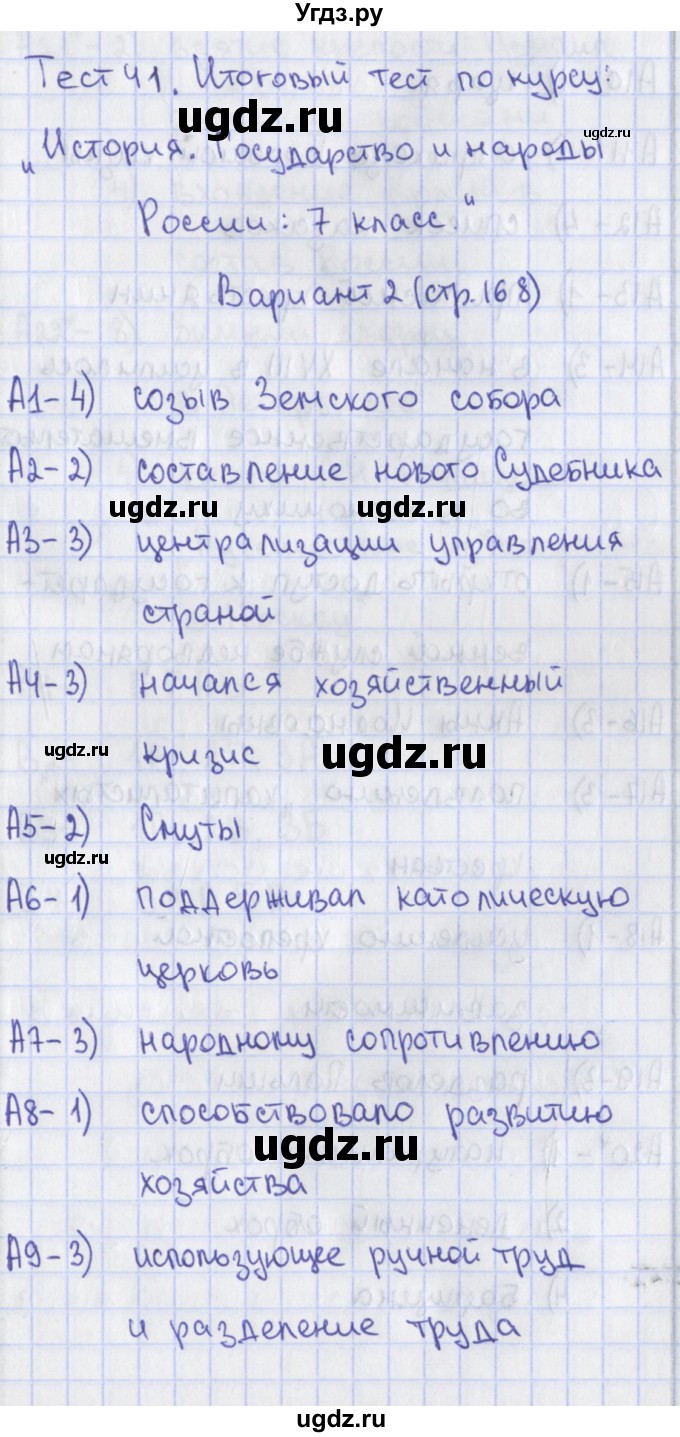 Угдз.ру
Тест 41. Итоговый тест по курсу:
ugdz.ru
ugdz.ru
"История. Государство и народы
России: 7 класс."
Вариант 2 (стр. 168)
А1-4) созыв Земского собора
А2-2) составление нового Судебника
ugdz.ru ugdz.ru
А3-3) централизации управления
страной
А4-3) начался хозяйственный
ugdz.ru ugdz.ru
кризис
А5-2) Смуты
ugdz.ru
А6-1) поддерживал католическую
церковь
А7-3) народному сопротивлению
А8-1) способствовало развитию
ugdz.ru
хозяйства
А9-3) использующее ручной труд
и разделение труда
ugdz.ru